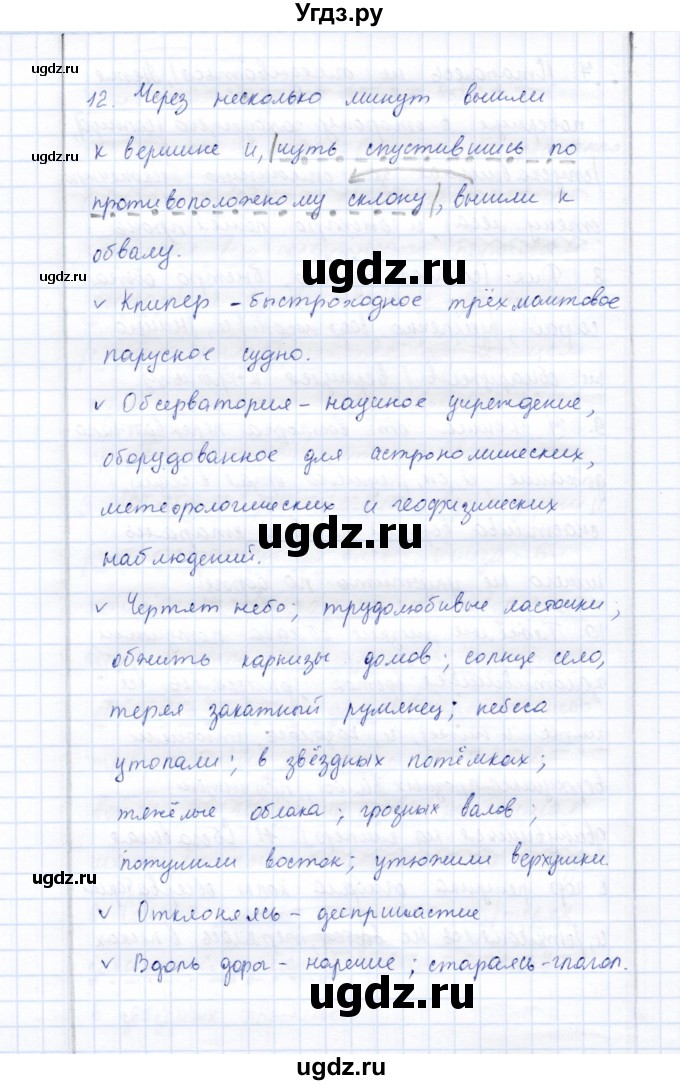 Угдз.ру
ugdz.ru
12. Через несколько минут вышли
ugdz.ru
к вершине и, |чуть спустившись по
противоположеному склону|, вышли к
обвалу.
ugdz.ru
ugdz.ru
v Клипер - быстроходное трёхмачтовое
парусное судно.
v Обсерватория - научное учреждение,
оборудованное для астрономических,
метеорологических и геофизических
ugdz.ru
наблюдений.
v Чертят небо; трудолюбивые ласточки;
обжить карнизы домов; солнце село,
теряя закатный румянец; небеса
утопали; в звёздных потёмках;
тяжёлые облака; грозных валов;
потушили восток; утюжили верхушки.
ugdz.ru
v Отклоняясь - деепричастие
v Вдоль доры - наречие; стараясь - глагол.
ugdz.ru
ugdz.ru